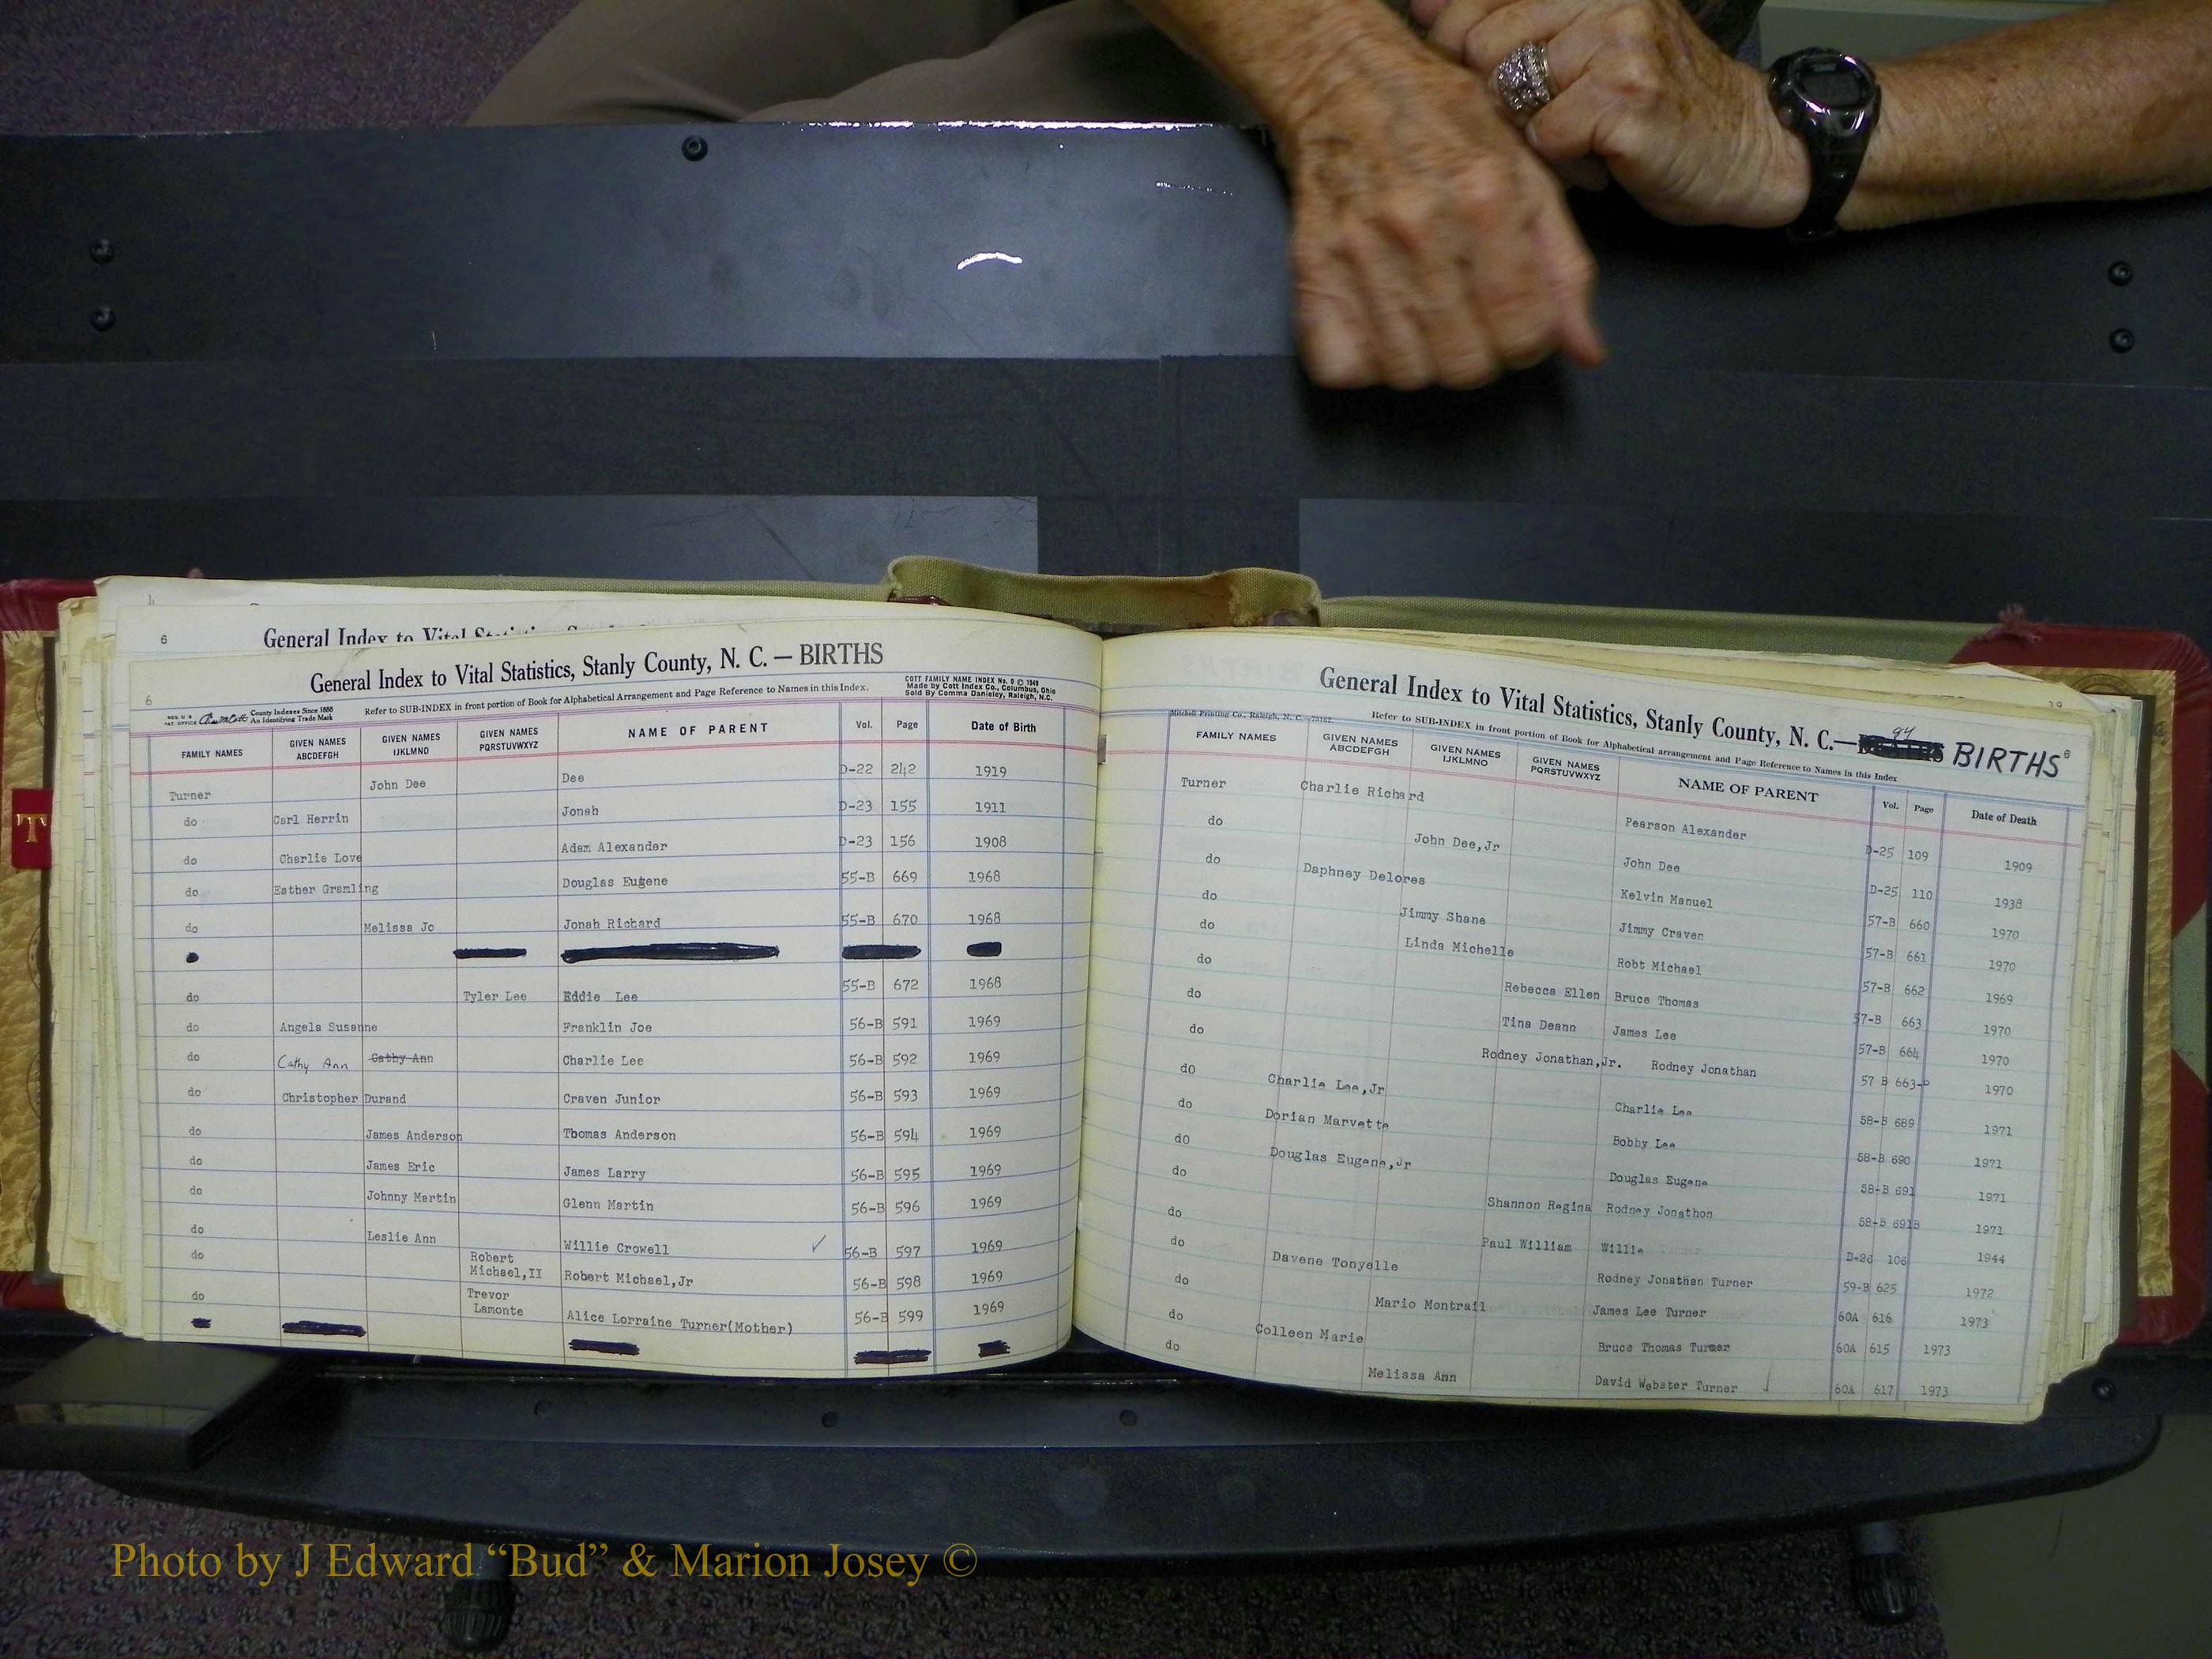 6
General Index to Vital Statistics,
6
General Index to Vital Statistics, Stanly County, N. C. — BIRTHS
County Indexes Since 1888
An Identifying Trade Mark
Refer to SUB-INDEX in front portion of Book for Alphabetical Arrangement and Page Reference to Names in this Index.
COTT FAMILY NAME INDEX No. 9 © 1949
Made by Cott Index Co., Columbus, Ohio
Sold By Comma Danieley, Raleigh, N.C.
FAMILY NAMES GIVEN NAMES ABCDEFGH GIVEN NAMES IJKLMNO GIVEN NAMES PQRSTUVWXYZ NAME OF PARENT Vol. Page Date of Birth
Turner John Dee Dee D-22 242 1919
do Carl Herrin Jonah D-23 155 1911
do Charlie Love Adam Alexander D-23 156 1908
do Esther Gramling Douglas Eugene 55-B 669 1968
do Melissa Jo Jonah Richard 55-B 670 1968
do Tyler Lee Eddie Lee 55-B 672 1968
do Angela Susanne Franklin Joe 56-B 591 1969
do Cathy Ann Cathy Ann Charlie Lee 56-B 592 1969
do Christopher Durand Craven Junior 56-B 593 1969
do James Anderson Thomas Anderson 56-B 594 1969
do James Eric James Larry 56-B 595 1969
do Johnny Martin Glenn Martin 56-B 596 1969
do Leslie Ann Willie Crowell ✓ 56-B 597 1969
do Robert Michael,II Robert Michael,Jr 56-B 598 1969
do Trevor Lamonte Alice Lorraine Turner(Mother) 56-B 599 1969
T
General Index to Vital Statistics, Stanly County, N. C.— 94 BIRTHS 6
19
Mitchell Printing Co., Raleigh, N. C.
Refer to SUB-INDEX in front portion of Book for Alphabetical arrangement and Page Reference to Names in this Index
FAMILY NAMES GIVEN NAMES ABCDEFGH GIVEN NAMES IJKLMNO GIVEN NAMES PQRSTUVWXYZ NAME OF PARENT Vol. Page Date of Death
Turner Charlie Richard Pearson Alexander D-25 109 1909
do John Dee,Jr John Dee D-25 110 1938
do Daphney Delores Kelvin Manuel 57-B 660 1970
do Jimmy Shane Jimmy Craven 57-B 661 1970
do Linda Michelle Robt Michael 57-B 662 1969
do Rebecca Ellen Bruce Thomas 57-B 663 1970
do Tina Deann James Lee 57-B 664 1970
do Rodney Jonathan,Jr. Rodney Jonathan 57 B 663-B 1970
do Charlie Lee,Jr Charlie Lee 58-B 689 1971
do Dorian Marvette Bobby Lee 58-B 690 1971
do Douglas Eugene,Jr Douglas Eugene 58-B 691 1971
do Shannon Regina Rodney Jonathon 58-B 691B 1971
do Paul William Willie D-26 106 1944
do Davene Tonyelle Rodney Jonathan Turner 59-B 625 1972
do Mario Montrail James Lee Turner 60A 616 1973
do Colleen Marie Bruce Thomas Turner 60A 615 1973
do Melissa Ann David Webster Turner 60A 617 1973
Photo by J Edward “Bud” & Marion Josey ©